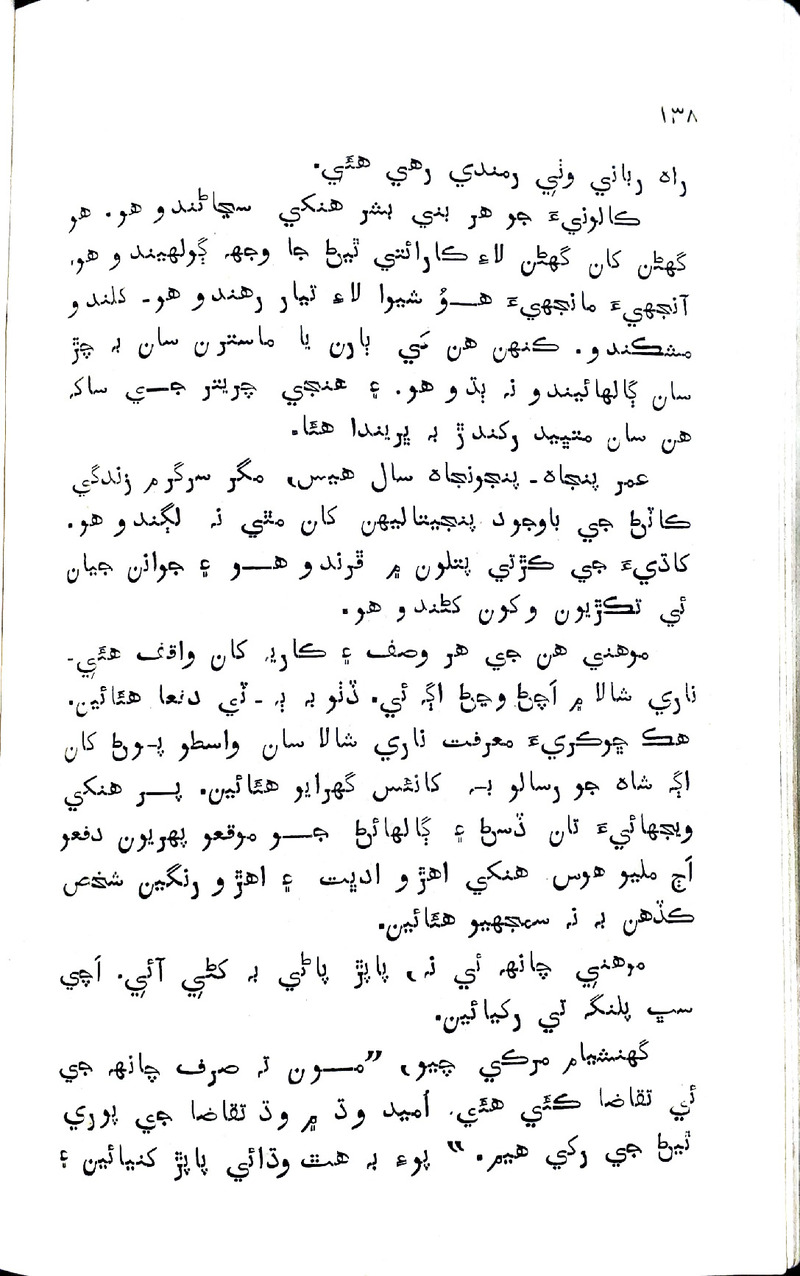 ١٣٨
راه رباني وٺي رمندي رهي هئي.
ڪالوني۽ جو هر بني بشر هنکي سڃاڻندو هو. هو
گهڻن کان گهڻن لاءِ ڪارائتي ٿيڻ جا وجهہ ڳولهيندو هو،
آنجهي۽ مانجهي۽ هـــوُ شيوا لاءِ تيار رهندو هو۔ کلندو
مشڪندو. ڪنهن هن کي ٻارن يا ماسترن سان بہ چڙ
سان ڳالهائيندو نہ ٻڌو هو. ۽ هنجي چريتر جـــي ساک
هن سان متڀيد رکندڙ بہ ڀريندا هئا.
عمر پنجاه۔ پنجونجاه سال هيس، مگر سرگرم زندگي
ڪاٽڻ جي باوجود پنجيتاليهن کان مٿي نہ لڳندو هو.
کاڌي۽ جي ڪڙتي پتلون ۾ ڦرندو هـــو ۽ جوانن جيان
ئي تڪڙيون وکون کڻندو هو.
موهني هن جي هر وصف ۽ ڪاريہ کان واقف هئي۔
ناري شالا ۾ اَچڻ وڃڻ اڳ ئي. ڏٺو بہ ٻہ ۔ ٽي دفعا هئائين.
هڪ ڇوڪري۽ معرفت ناري شالا سان واسطو پــوڻ کان
اڳ شاه جو رسالو بــہ کانئس گهرايو هئائين. پـــر هنکي
ويجهائي۽ تان ڏسڻ ۽ ڳالهائڻ جـــو موقعو پهريون دفعو
اَڄ مليو هوس. هنکي اهڙو اديت ۽ اهڙو رنگين شخص
ڪڏهن بہ نہ سمجهيو هئائين.
موهني چانهہ ئي نہ، پاپڙ پاڻي بہ کڻي آئي. اَچي
سڀ پلنگ تي رکيائين.
گهنشيام مرڪي چيو، ”مـــون تہ صرف چانهہ جي
ئي تقاضا ڪئي هئي. اُميد وڌ ۾ وڌ تقاضا جي پوري
ٿيڻ جي رکي هيم.“ پوءِ بہ هٿ وڌائي پاپڙ کنيائين ۽